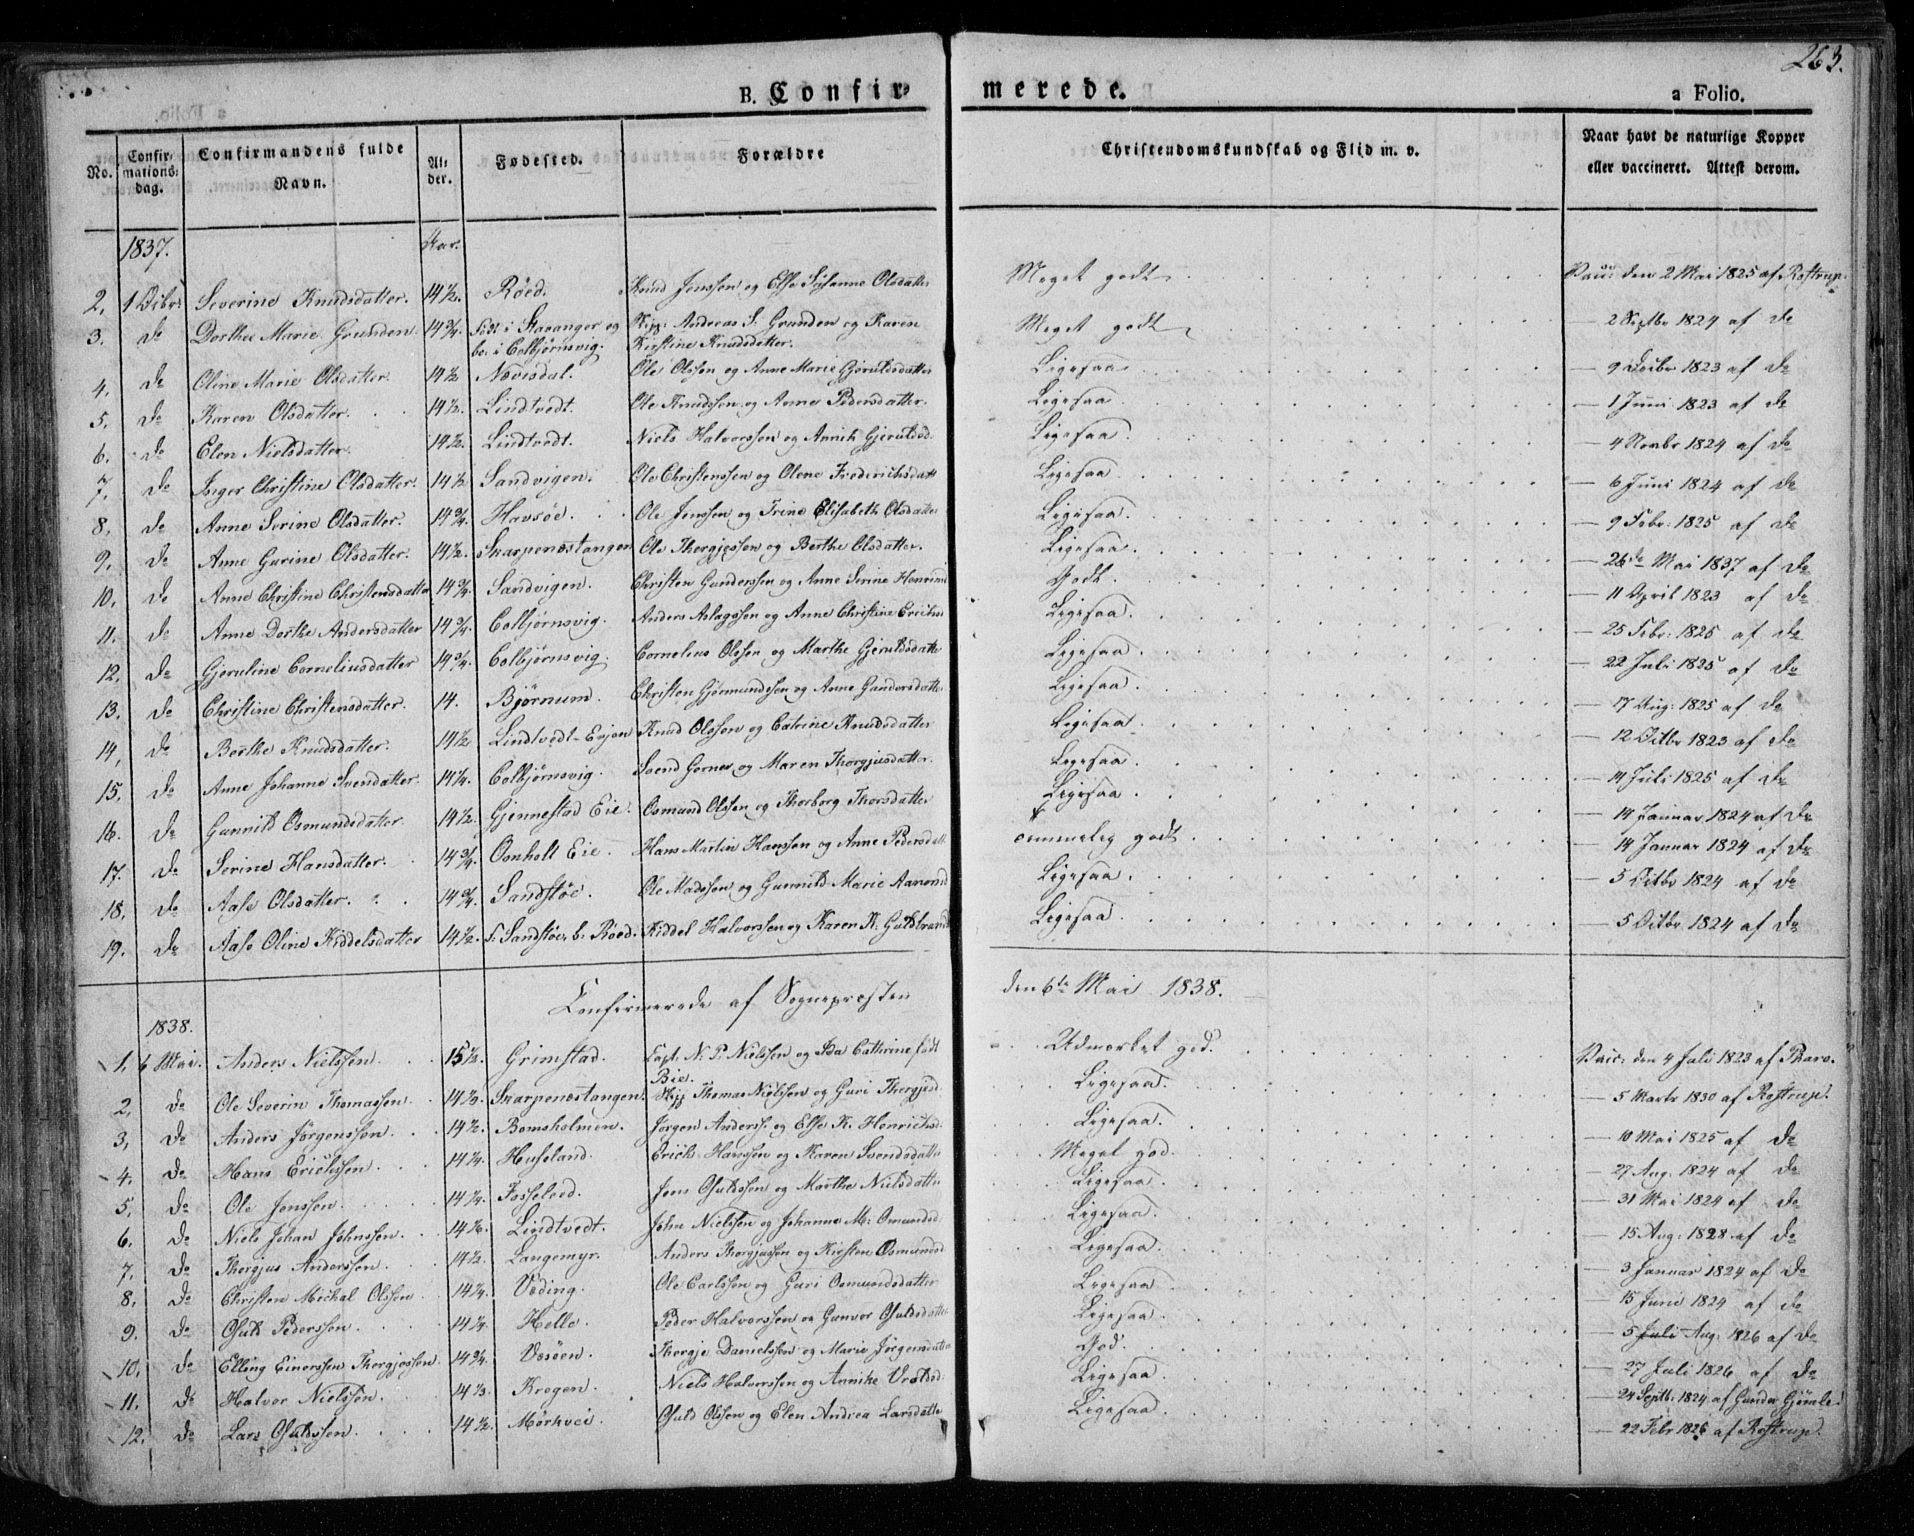 263.
B. Confirmerede.
a Folio.
No. Confirmationsdag. Confirmandens fulde Navn. Alder. Fødested. Forældre Christendomskundskab og Flid m. v. Naar havt de naturlige Kopper eller vaccineret. Attest derom.
1837. Aar.
2. 1 Octbr. Severine Knudsdatter. 14½. Røed. Knud Jenssen og Else Susanne Olsdatter Meget godt Vacc: den 2 Mai 1825 af Rostrup.
3. do Dorthea Marie Grunden 14¾. Født i Stavanger og bo. i Colbjørnsvig. Skip: Andreas S. Grunden og Karen Kirstine Knudsdatter. Meget godt — 2 Septbr 1824 af do
4. do Oline Marie Olsdatter 14½ Nævisdal. Ole Olssen og Anne Marie Gjeruldsdatter Ligesaa — 9 Octbr 1823 af do
5. do Karen Olsdatter. 14½. Lindtvedt. Ole Knudssen og Anne Pedersdatter. Ligesaa — 1 Juni 1823 af do
6. do Elen Nielsdatter. 14½. Lindtvedt. Niels Halvorssen og Annich Gjeruldsd. Ligesaa. — 4 Novbr 1824 af do
7. do Inger Christine Olsdatter. 14½ Sandvigen. Ole Christenssen og Olene Frederichsdatt Ligesaa — 6 Juni 1824 af do
8. do Anne Serine Olsdatter. 14¾. Havsøe. Ole Jenssen og Trine Elisabeth Olsdatter Ligesaa. — 9 Febr: 1825 af do
9. do Anne Gurine Olsdatter. 14½. Skarpenæstangen Ole Thergjessen og Berthe Olsdatter. Ligesaa. — 26de Mai 1837 af do
10. do Anne Christine Christensdatter 14¾. Sandvigen. Christen Gunderssen og Anne Serine Henrichs Godt. — 11 April 1823 af do
11. do Anne Dorthe Andersdatter 14¾. Colbjørnsvig. Anders Aslagssen og Anne Christine Erichs Ligesaa. — 25 Febr: 1825 af do
12. do Gjeruline Corneliusdatter 14¾. Colbjørnsvig. Cornelius Olssen og Marthe Gjeruldsdatt Ligesaa. — 22 Juli 1825 af do
13. do Christine Christensdatter. 14. Bjørnum. Christen Gjermundssen og Anne Gundersdatter Ligesaa. — 17 Aug: 1825 af do
14. do Berthe Knudsdatter. 14½ Lindtvedt-Eejen Knud Olssen og Catrine Knudsdatter Ligesaa. — 12 Octbr 1823 af do
15. do Anne Johanne Svendatter. 14¼. Colbjørnsvig. Svend Gerner og Maren Thorgjusdatter. Ligesaa. — 14 Juli 1825 af do
16. do Gunnild Osmundsdatter. 14½. Gjennestad Eie. Osmund Olssen og Thorborg Thorsdatter Ligesaa. — 14 Januar 1824 af do
17. do Serine Hansdatter. 14¾. Oenholt Eie. Hans Martin Hanssen og Anne Pedersdatt Temmelig godt — 14 Januar 1824 af do
18. do Aase Olsdatter. 14¾. Sandstøe. Ole Madssen og Gunnild Marie Aanonsd Ligesaa. — 5 Octbr 1824 af do
19. do Aase Oline Kiddelsdatter 14½. f. Sandstøe, b. Røed. Kiddel Halvorssen og Karen K. Guldbrands Ligesaa. — 5 Octbr 1824 af do
Confirmerede af Sognepræsten den 6te Mai 1838.
1838.
1. 6 Mai. Anders Nielssen. 15½. Grimstad. Capt: N. P. Nielssen og Ida Cathrine født Bie. Udmærket god. Vacc: den 4 Juli 1823 af Tharo.
2. do Ole Severin Thomassen. 14½. Skarpenæstangen. Skip Thomas Nielssen og Guri Thergjesd. Ligesaa. — 5 Marts 1830 af Rostrup.
3. do Anders Jørgenssen. 14½. Bomsholmen. Jørgen Anderss: og Else K. Henrichsd. Ligesaa. — 10 Mai 1825 af do
4. do Hans Erichssen. 14¼. Huseland. Erich Hanssen og Karen Svendsdatter Meget god. — 27 Aug: 1824 af do
5. do Ole Jenssen. 14¼. Fosseleed. Jens Oluldssen og Marthe Nielsdatter Ligesaa. — 31 Mai 1824 af do
6. do Niels Johan Johnssen. 14½. Lindtvedt. John Nielssen og Johanne M: Omundsd. Ligesaa. — 15 Aug: 1828 af do
7. do Thergjus Anderssen. 14½. Langemyr. Anders Thorgjussen og Kirsten Osmundsd Ligesaa. — 3 Januar 1824 af do
8. do Christen Michal Olssen. 14¼. Veding. Ole Carlssen og Guri Osmundsdatter Ligesaa. — 15 Junii 1824 af do
9. do Osuld Pederssen. 14¼. Helle. Peder Halvorssen og Gunvor Osuldsdatter Ligesaa. — 5 Juli Aug: 1826 af do
10. do Elling Einerssen Thergjessen. 14¾. Væsøen. Thergje Danielssen og Marie Jørgensdatter God. — 27 Juli 1826 af do
11. do Halvor Nielssen. 14⅓. Krogen. Niels Halvorssen og Annike Ursd. Ligesaa. — 24 Septb: 1824 af Gunder Gjemle.
12. do Lars Osuldssen. 14½. Mørkvei. Osuld Olssen og Elen Andrea Larsdatter Ligesaa. — 22 Febr 1826 af Rostrup.